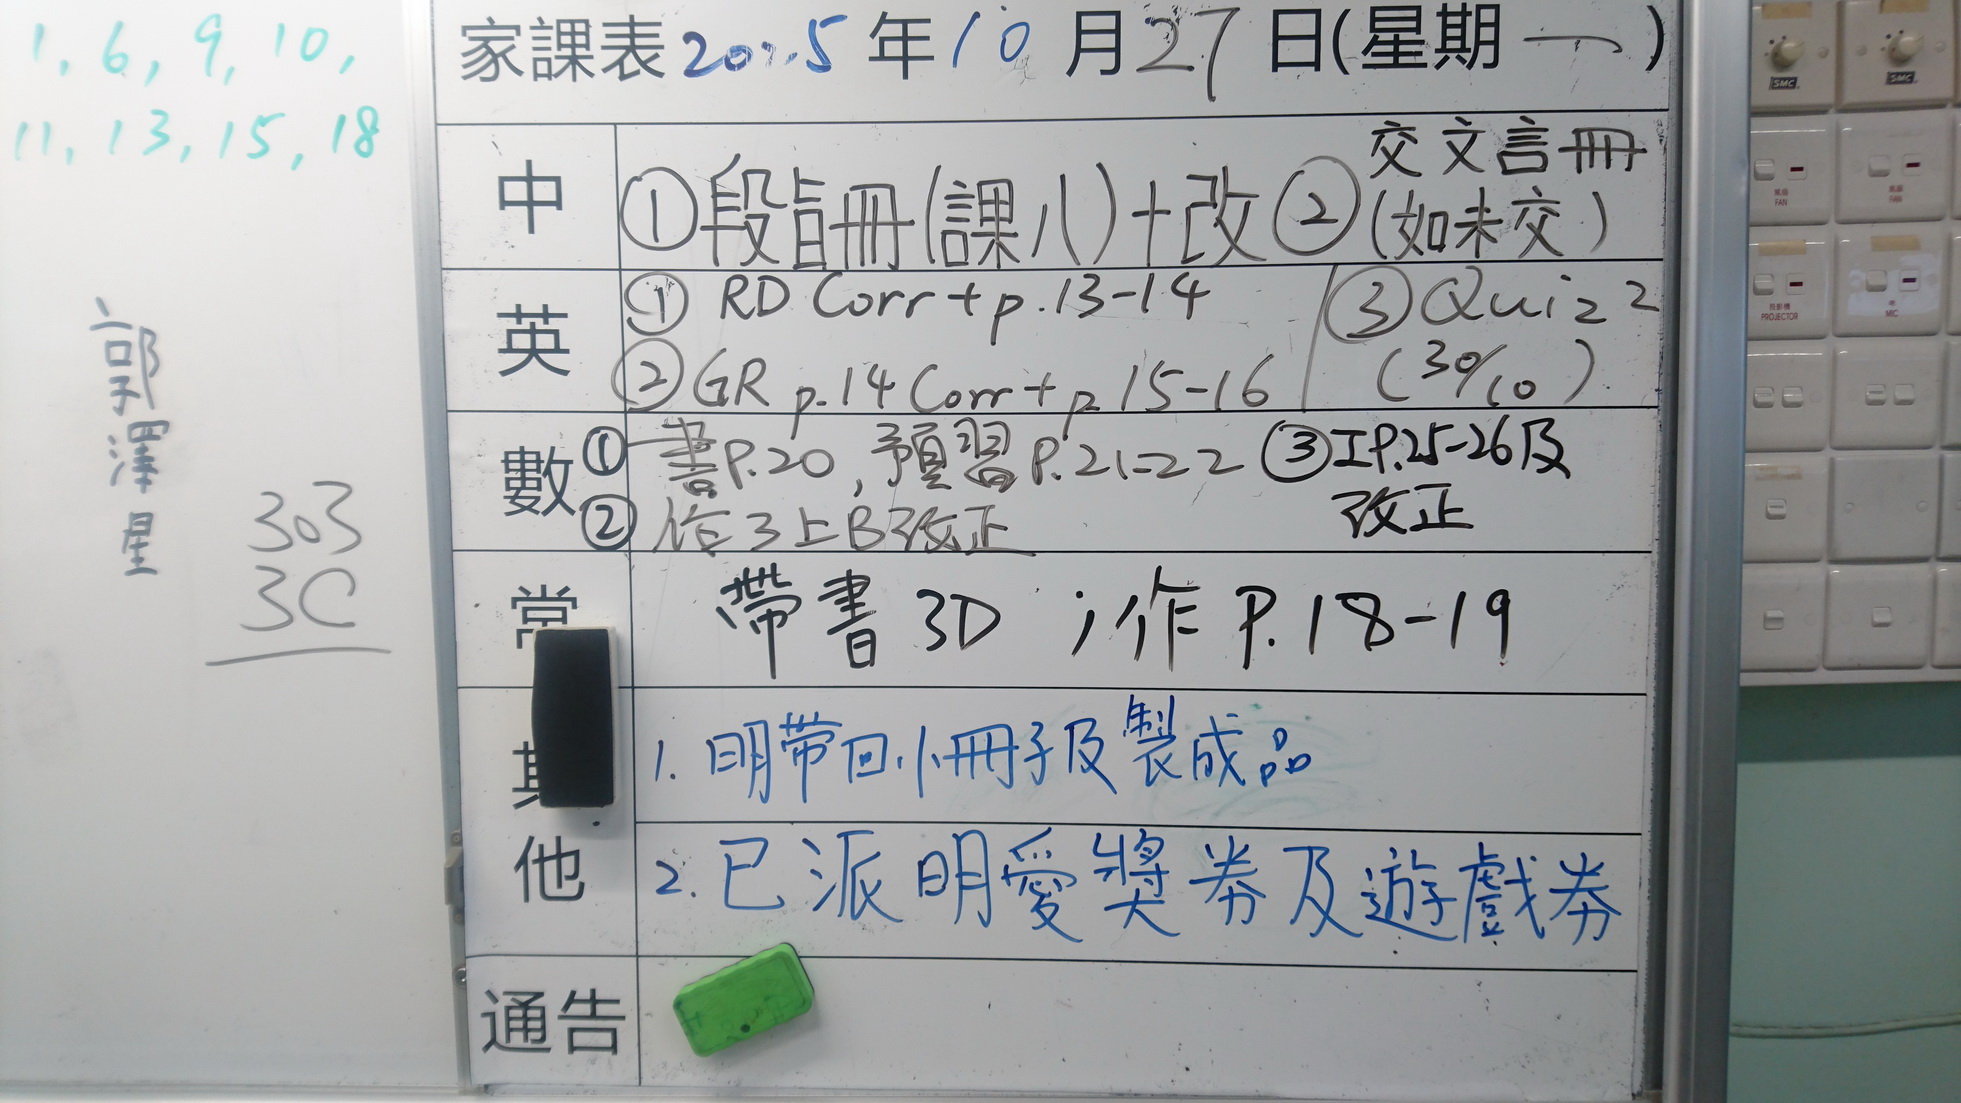 1, 6, 9, 10,
11, 13, 15, 18
郭澤星
303
3C
家課表 2025年10月27日(星期一)
中
①段旨冊(課八)+改 ②交文言冊
(如未交)
英
① RD Corr + p.13-14
② GR p.14 Corr + p 15-16
③ Quiz 2
(30/10)
數
① 書P.20, 預習P.21-22
② 倍3上B改正
③ I P.25-26及
改正
常
帶書 3D ; 作 P.18-19
其他
1. 明帶回小冊子及製成品
2. 已派明愛獎券及遊戲券
通告
SMC
SMC
風扇
FAN
風扇
FAN
投影機
PROJECTOR
MIC